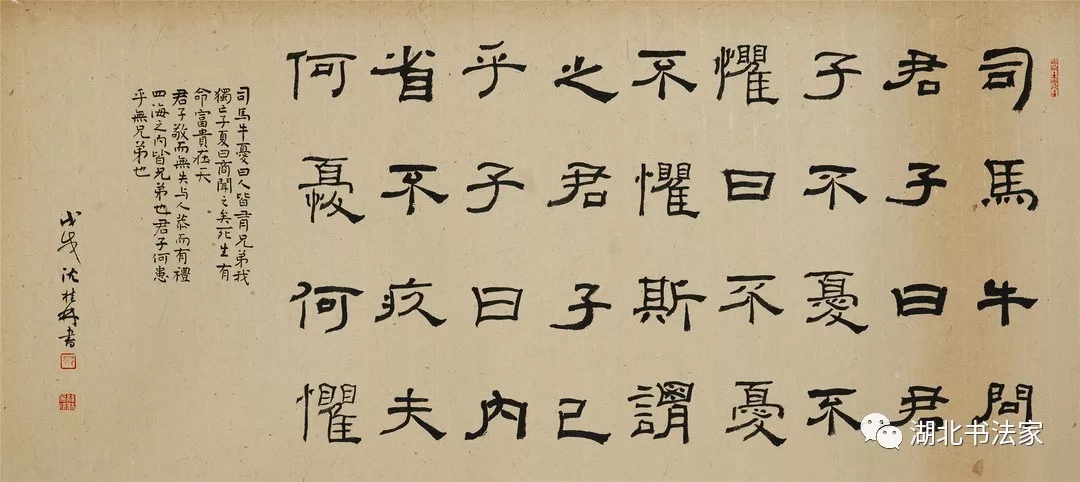 司馬牛問
君子曰君
子不憂不
懼曰不憂
不懼斯謂
之君子已
乎子曰内
省不疚夫
何憂何懼
司馬牛憂曰人皆有兄弟我
獨亡子夏曰商聞之矣死生有
命富貴在天
君子敬而無失与人恭而有禮
四海之内皆兄弟也君子何患
乎無兄弟也
戊戌沈桂林書
湖北书法家